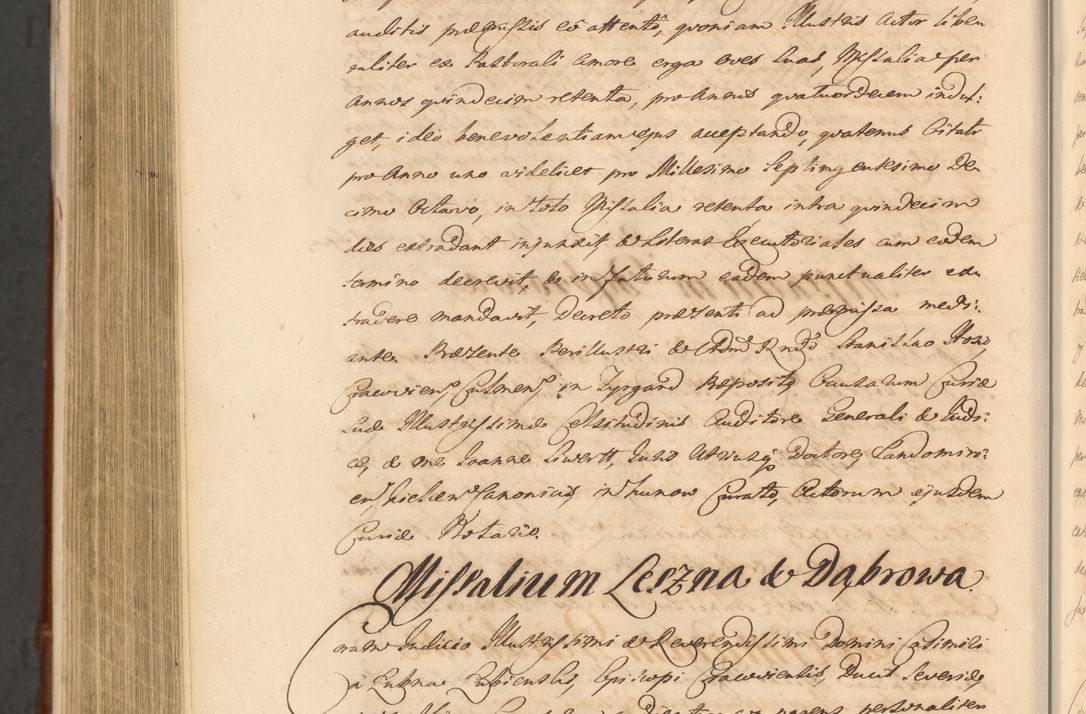 auditis præmissis eò attentò, quoniam Illustris Actor liben
raliter ex Pastorali amore erga oves suas, Missalia per
Annos quindecim retenta, pro Annis quatuordecem indul:
get, ideo benevolentiam ejus acceptando, quatenus Citati
pro Anno uno videlicet pro Millesimo Septingentesimo De
cimo Octavo, in toto Missalia retenta intra quindecim
dies extradant injunxit & Literas Executoriales cum eodem
termino decrevit, & in futurum eadem punctualiter ex
tradere mandavit, Decreto præsenti ad præmissa medi:
ante. Præsente Perillustri & Admd Rndo Stanislao
Cracovien Culmen in Præposito Causarum Curiæ
suæ Illustrissimæ Celsitudinis Auditore Generali & Judi:
ce, & me Joanne Siwertt, Juris Utriusq Doctore, Sandomiri:
en, Kielcen Canonico, in Curato, Actorum ejusdem
Curiæ Notario.
Missalium Leszna & Dąbrowa.
Coram Judicio Illustrissimi & Reverendissimi Domini Casimiri
à Łubna Łubienski, Episcopi Cracoviensis, Ducis Severiæ,
personaliter